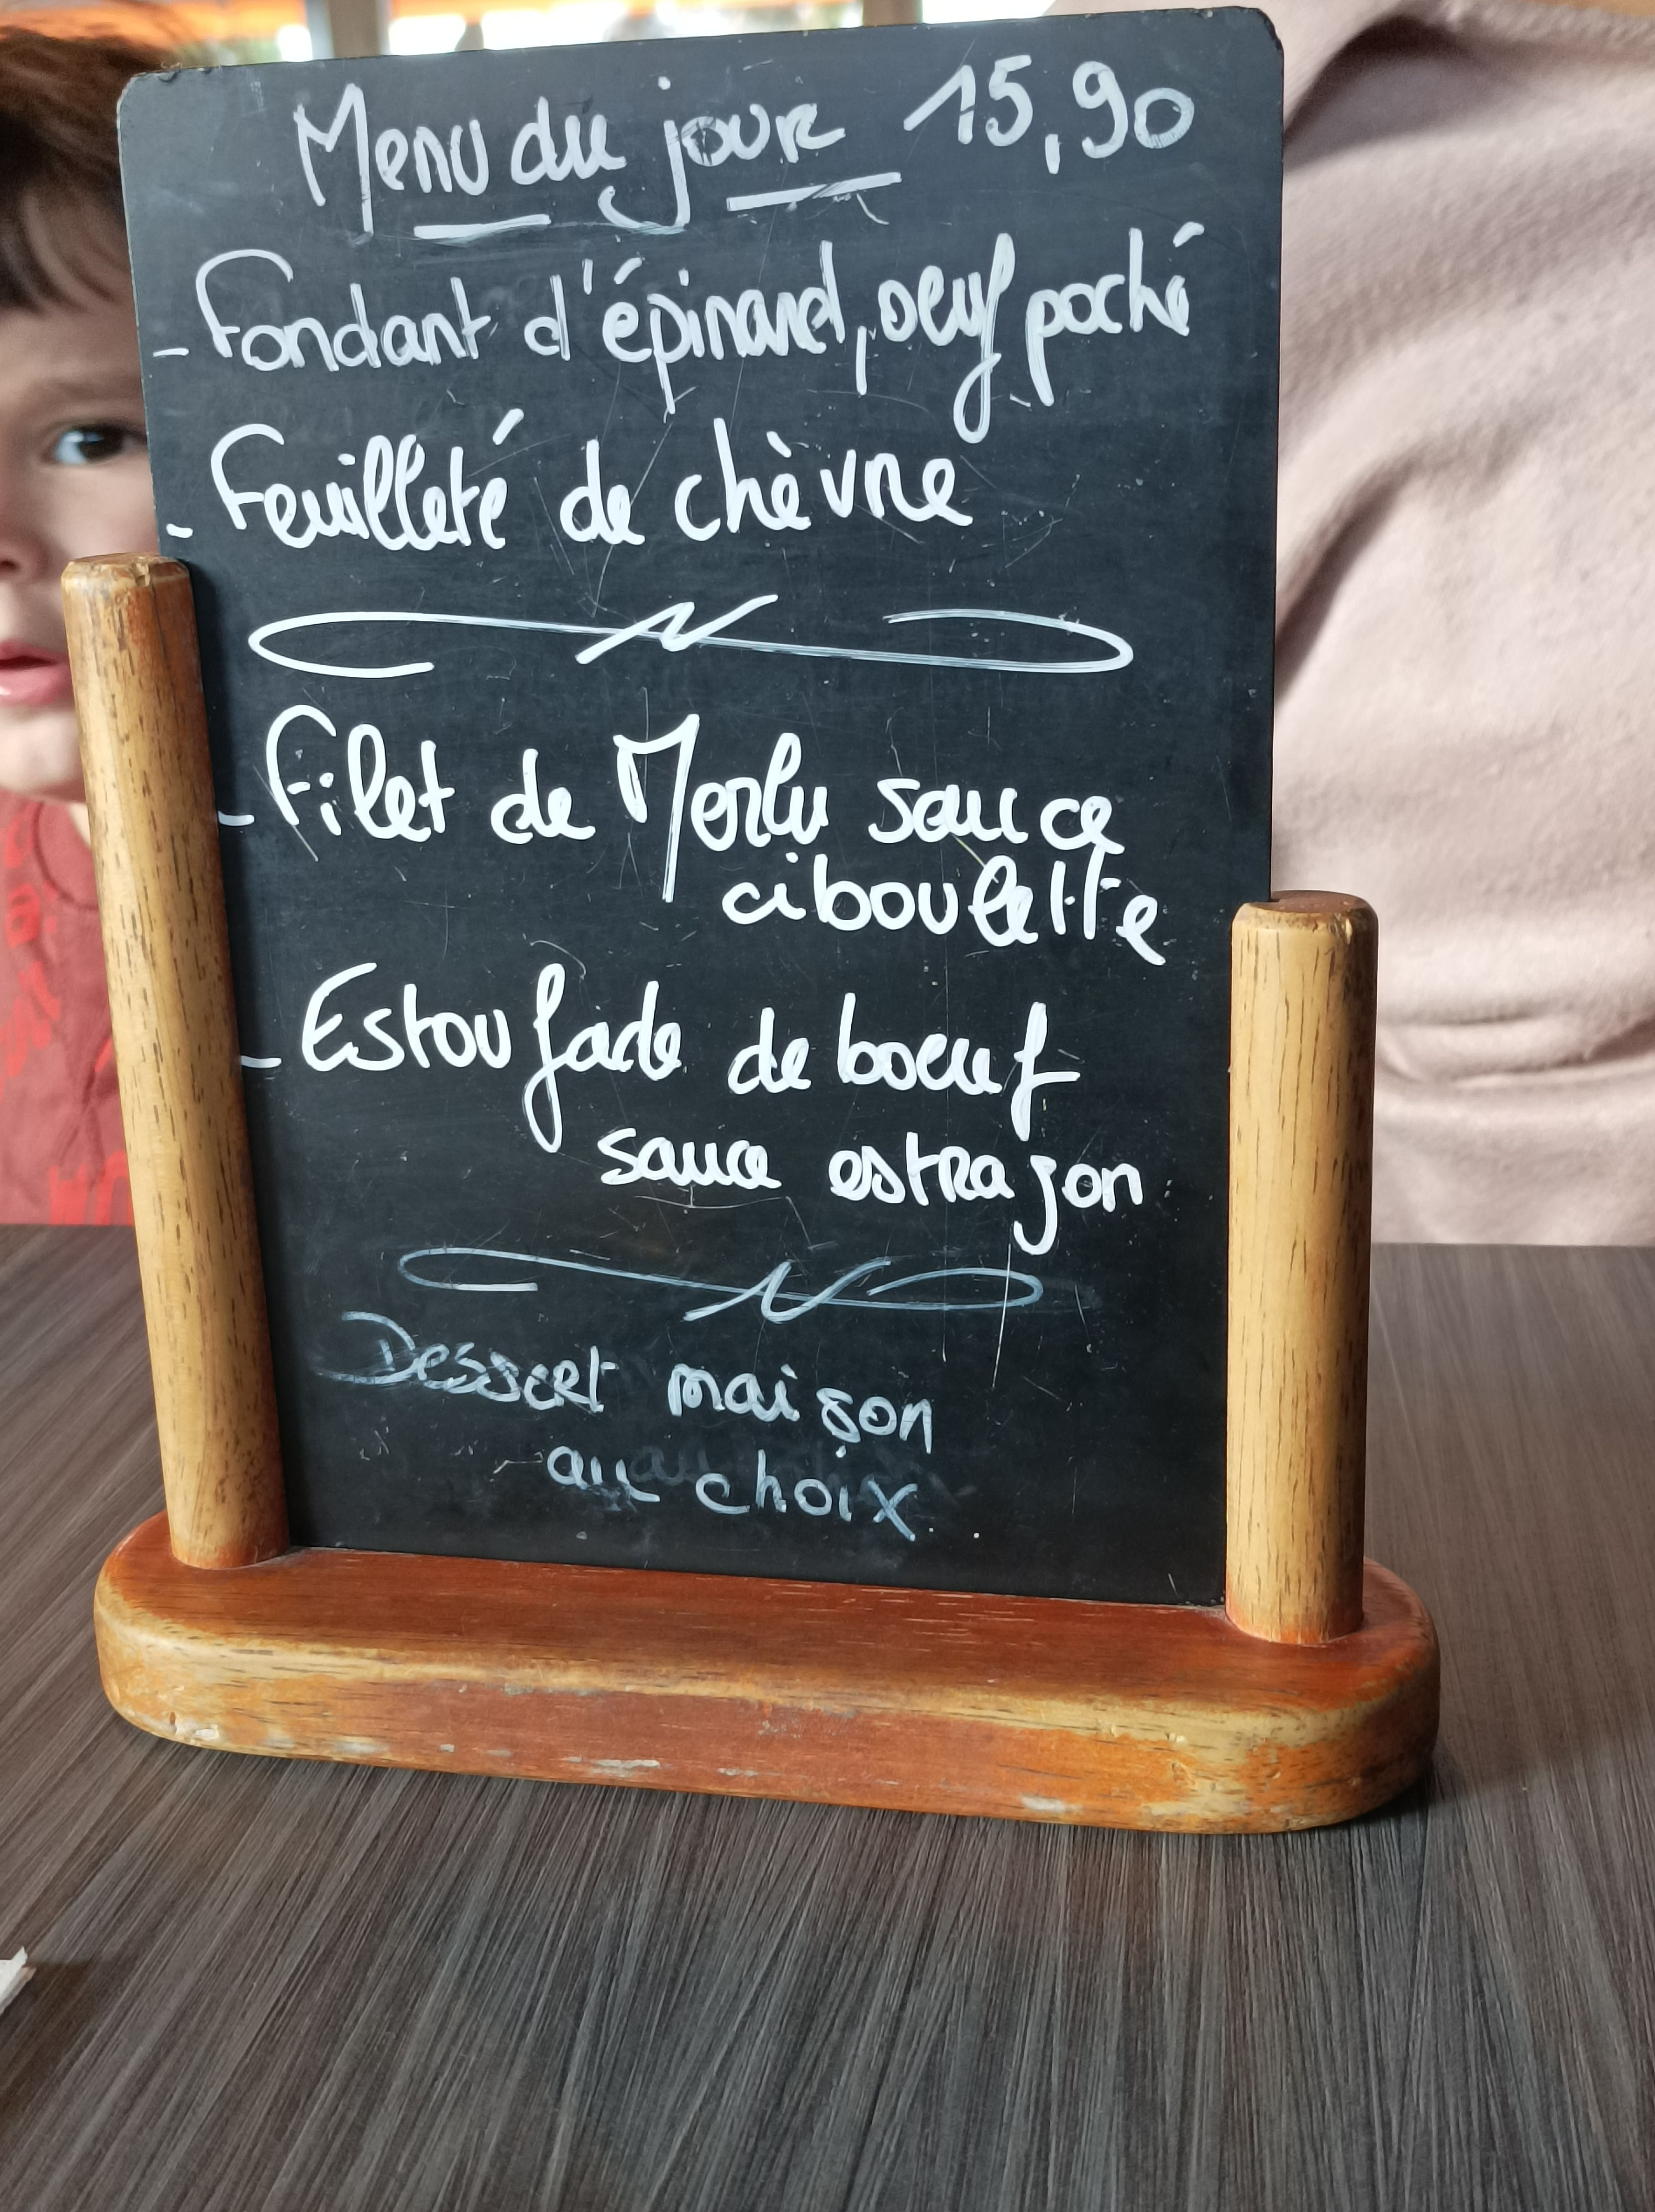 Menu du jour 15,90
- Fondant d'épinard, oeuf poché
- Feuilleté de chèvre
- Filet de Merlu sauce
ciboulette
- Estoufade de boeuf
sauce estragon
Dessert maison
au choix